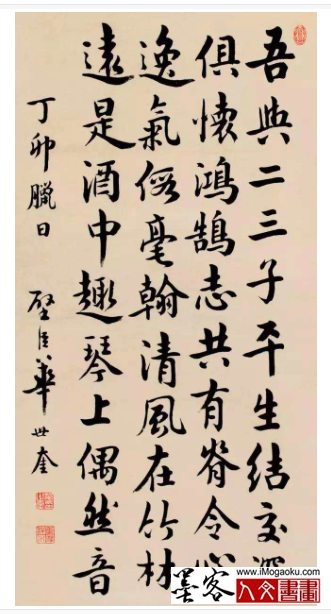 吾與二三子平生結交深
俱懷鴻鵠志共有脊令心
逸氣假毫翰清風在竹林
遠是酒中趣琴上偶然音
丁卯臘日 壁臣華世奎
墨客
www.iMogaoku.com
人文書畫